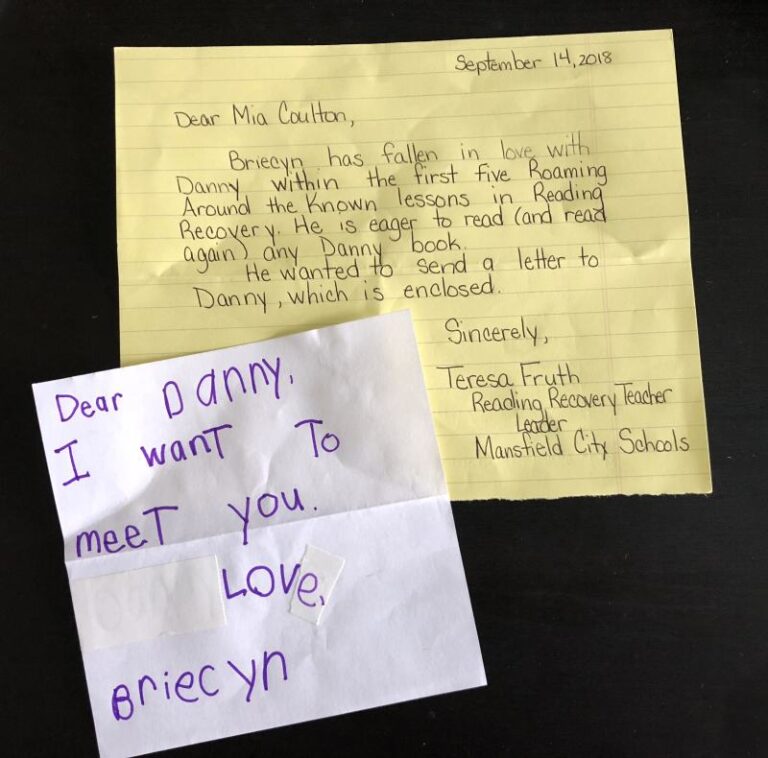 September 14, 2018
Dear Mia Coulton,
Briecyn has fallen in love with
Danny within the first five Roaming
Around the Known lessons in Reading
Recovery. He is eager to read (and read
again) any Danny book.
He wanted to send a letter to
Danny, which is enclosed.
Sincerely,
Teresa Fruth
Reading Recovery Teacher
Leader
Mansfield City Schools
Dear Danny,
I want To
meeT you.
LOVe,
Briecyn